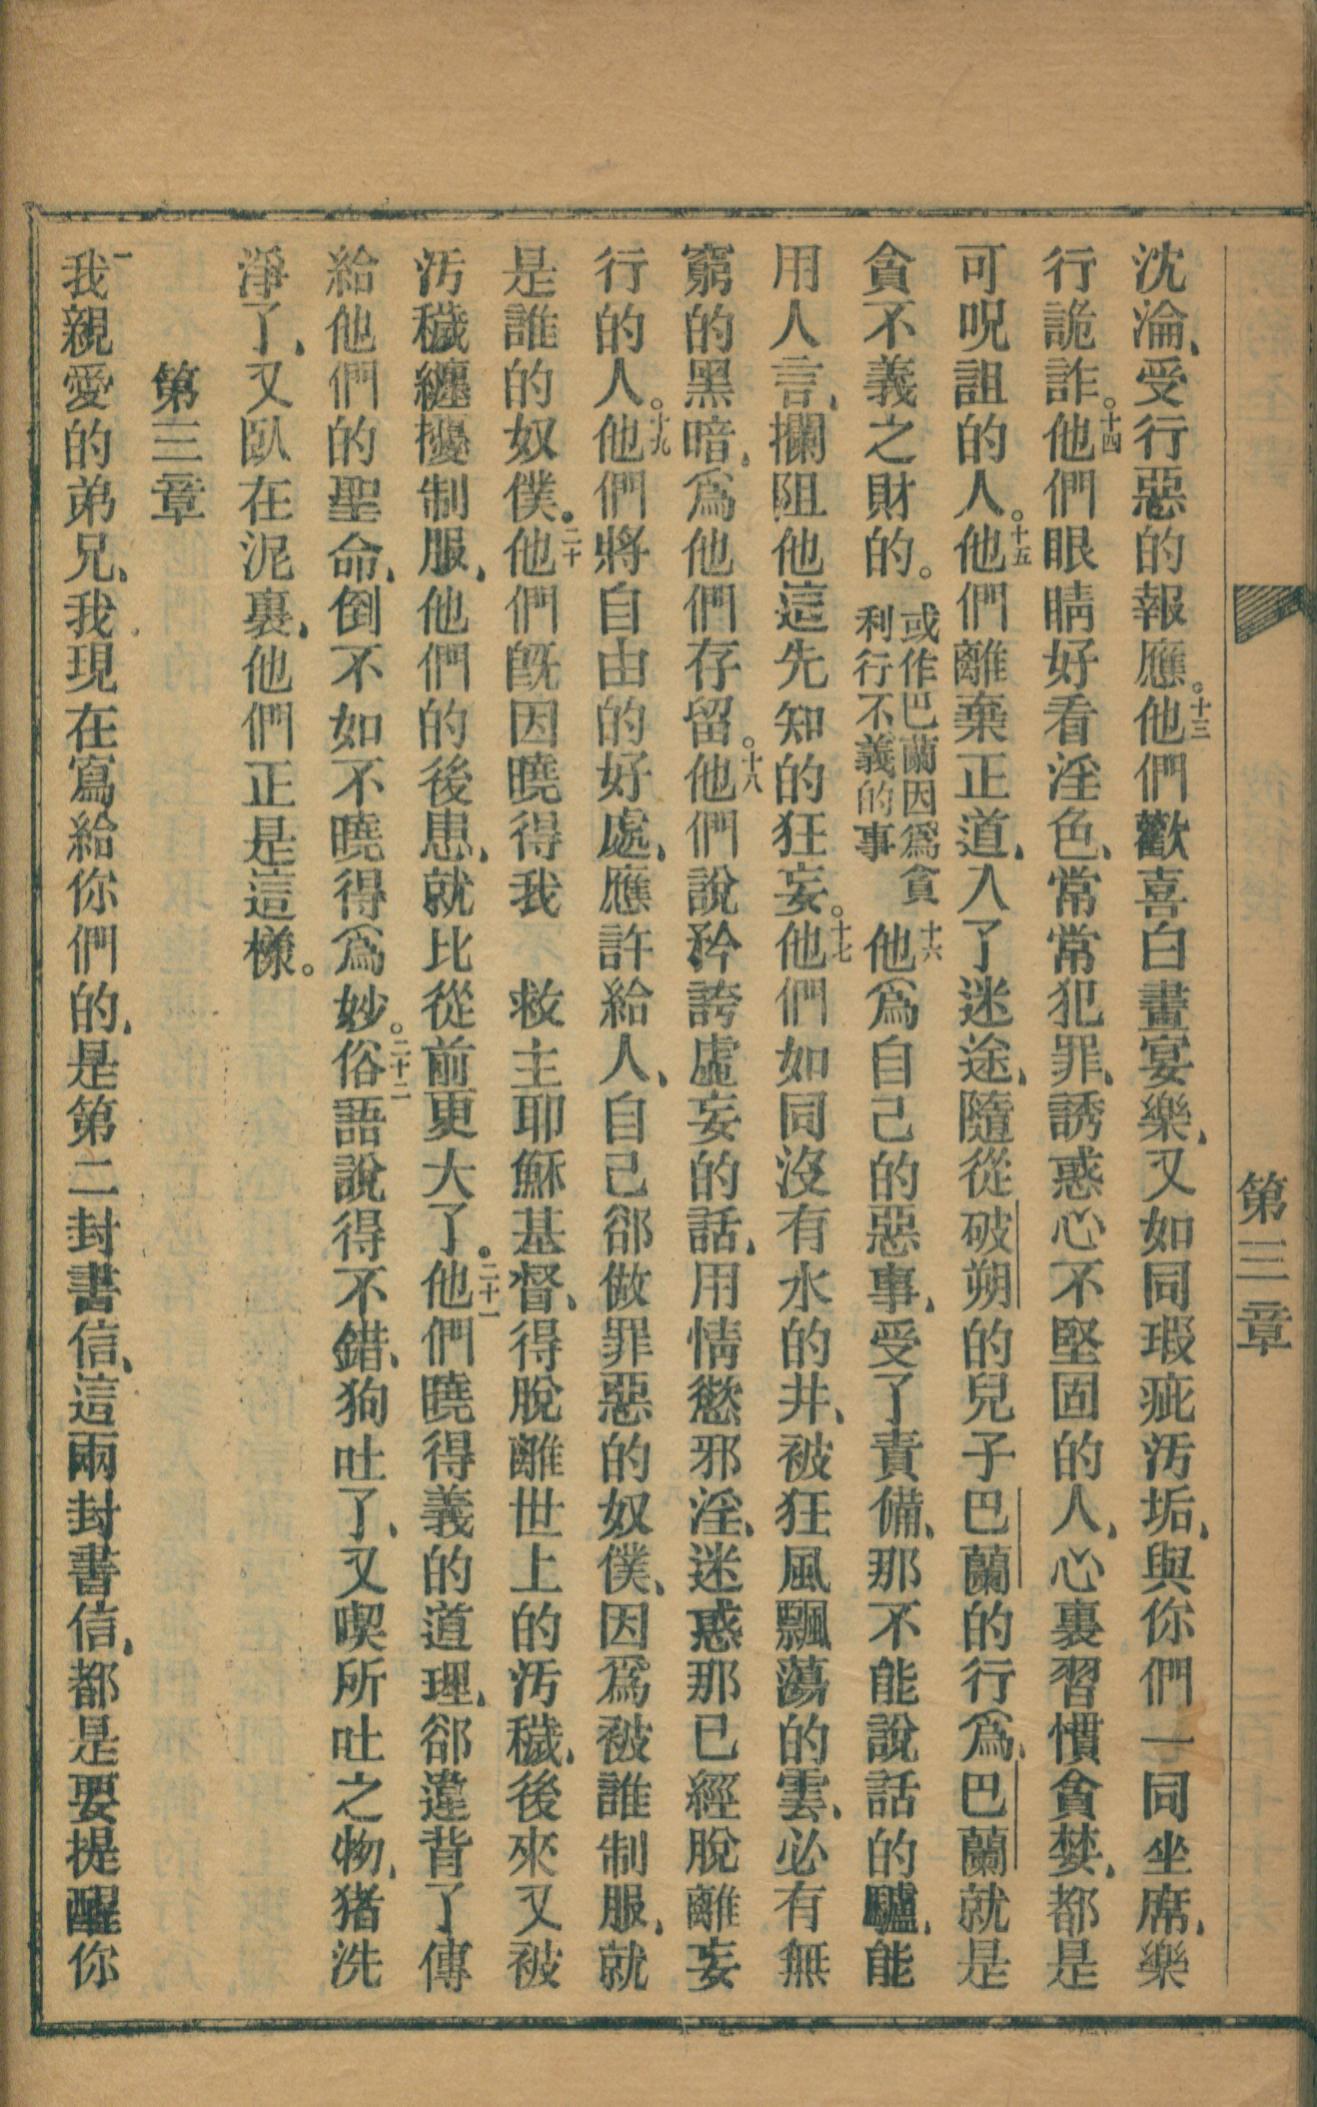 第三章
沈淪、受行惡的報應。十三他們歡喜白晝宴樂、又如同瑕疵汚垢、與你們一同坐席、樂
行詭詐。十四他們眼睛好看淫色、常常犯罪、誘惑心不堅固的人、心裏習慣貪婪、都是
可呪詛的人。十五他們離棄正道、入了迷途、隨從破朔的兒子巴蘭的行爲、巴蘭就是
貪不義之財的。或作巴蘭因爲貪利行不義的事十六他爲自己的惡事、受了責備、那不能說話的驢、能
用人言、攔阻他這先知的狂妄。十七他們如同沒有水的井、被狂風飄蕩的雲、必有無
窮的黑暗、爲他們存留。十八他們說矜誇虛妄的話、用情慾邪淫、迷惑那已經脫離妄
行的人。十九他們將自由的好處、應許給人、自己郤做罪惡的奴僕、因爲被誰制服、就
是誰的奴僕。二十他們旣因曉得我 救主耶穌基督、得脫離世上的汚穢、後來又被
汚穢纏擾制服、他們的後患、就比從前更大了。二十一他們曉得義的道理、郤違背了傳
給他們的聖命、倒不如不曉得爲妙。二十二俗語說得不錯、狗吐了、又喫所吐之物、猪洗
淨了、又臥在泥裏、他們正是這樣。
第三章
一我親愛的弟兄、我現在寫給你們的、是第二封書信、這兩封書信、都是要提醒你